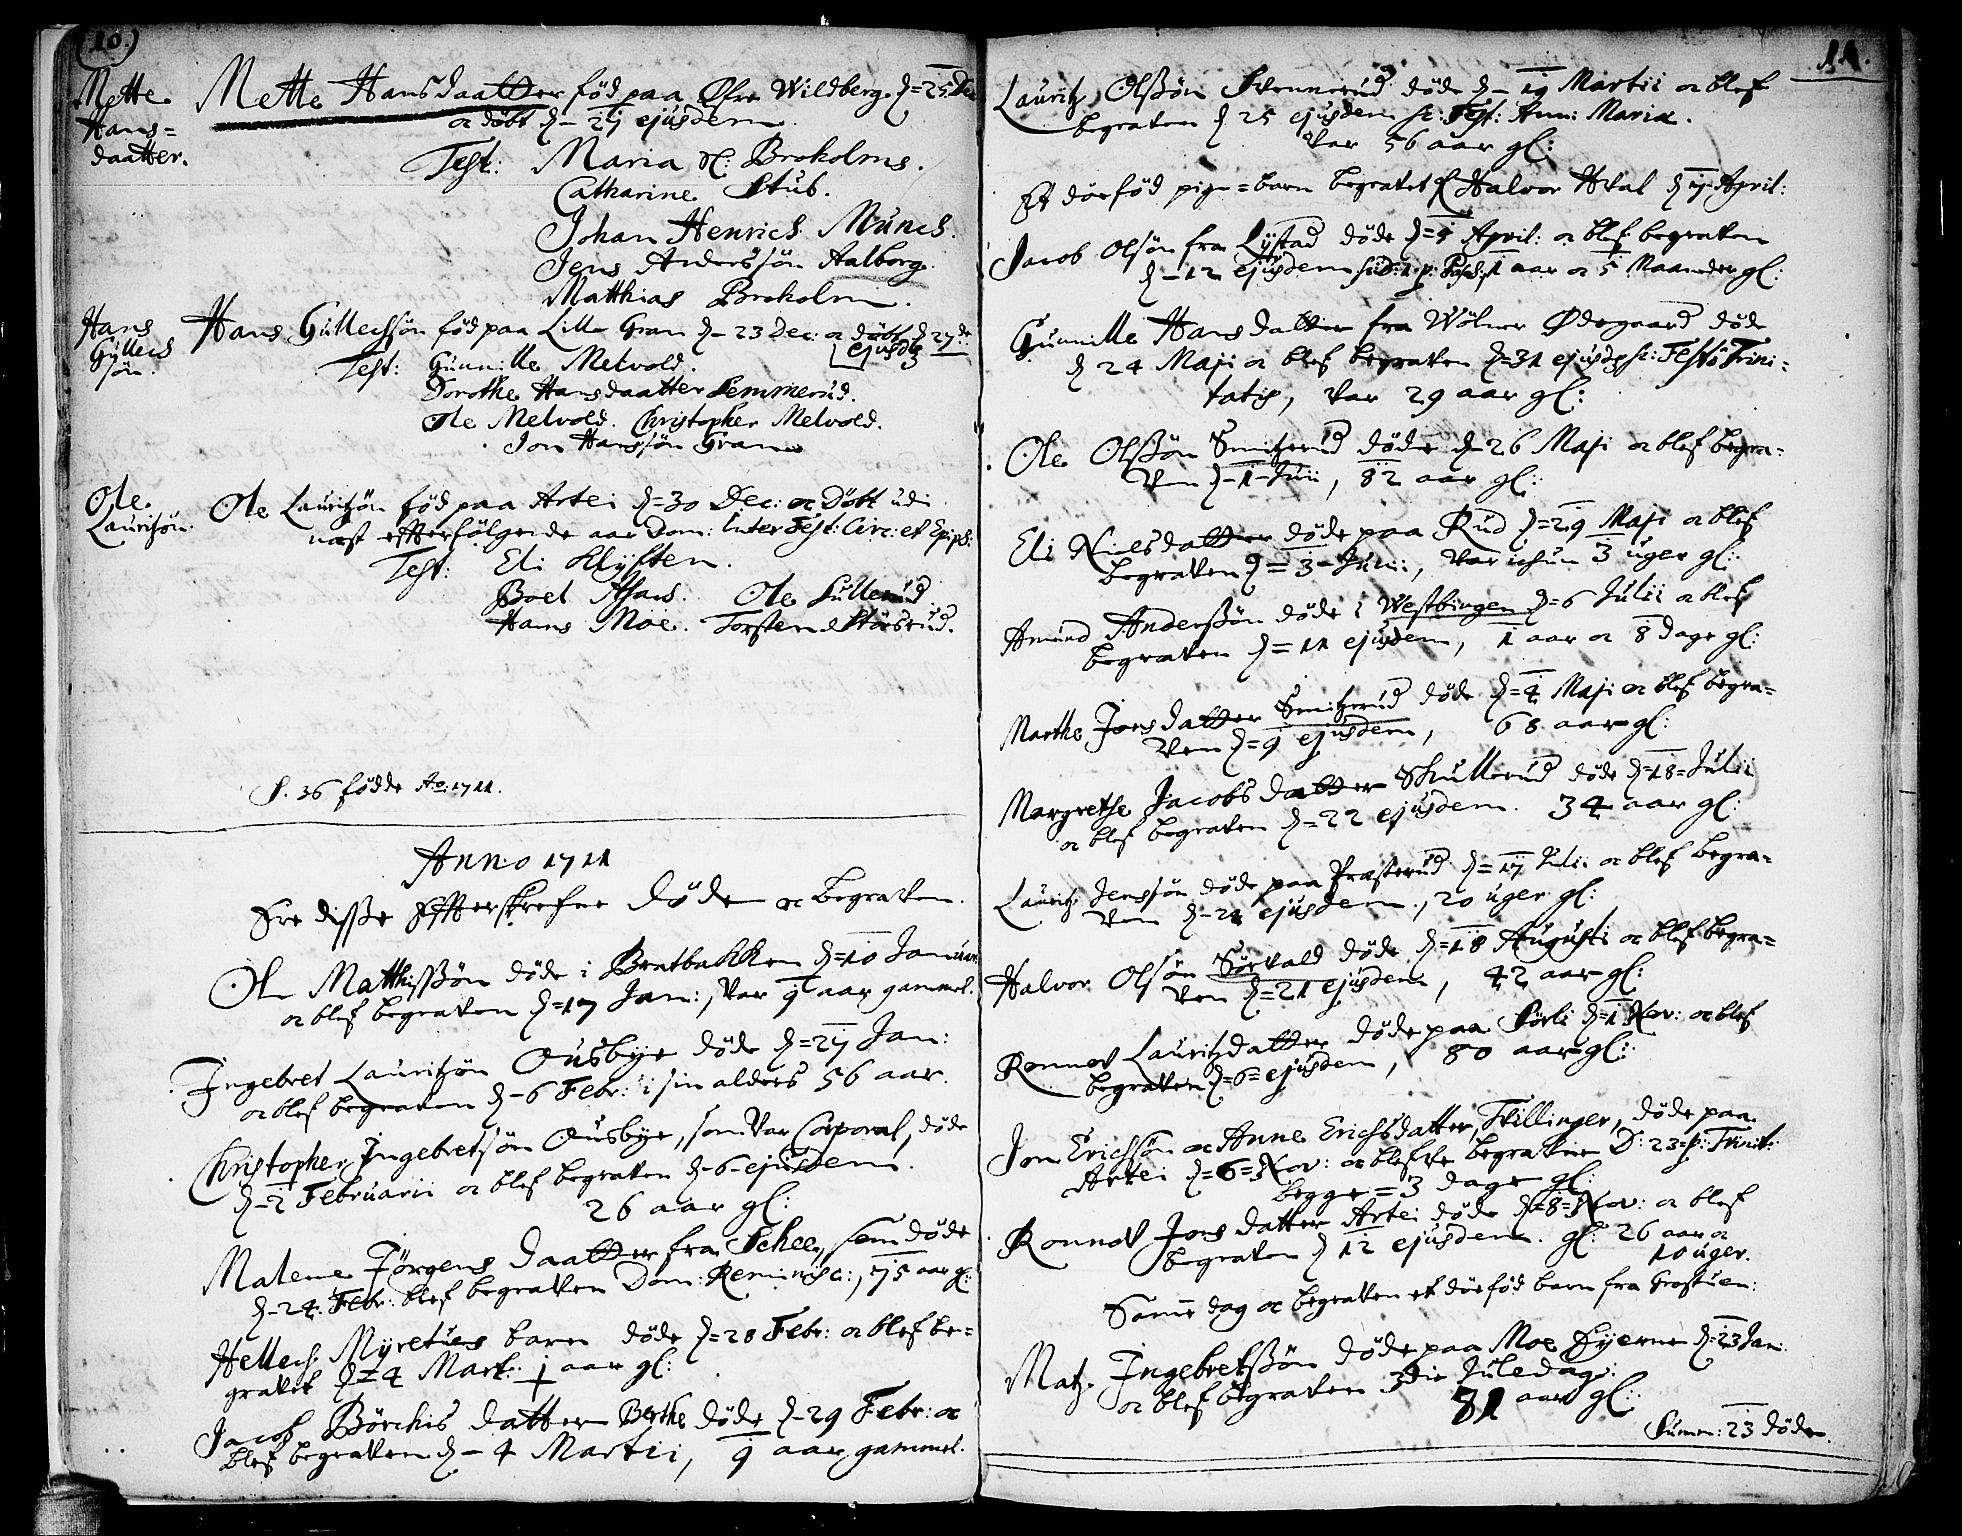 (10.)
Mette
Hans=
daatter.
Mette Hansdaatter föd paa Øfre Wildberg d=25 Dec
oc döbt d- 27 ejusdem.
Test: Maria Sl: Brokolms.
Catharine Stub.
Johan Henrich Munch.
Jens Anderssön Aalborg.
Matthias Brokolm.
Hans
Gullechs
sön.
Hans Gullechsön föd paa Lille Gran d- 23 Dec: oc döbt d 27de
ejusdem
Test: Gunnille Melvold.
Dorothe Hansdaatter Semmerud.
Ole Melvold. Christopher Melvold.
Jon Hanssön Gran
Ole
Lauritzön.
Ole Lauritzön föd paa Artei d=30 Dec: oc Döbt udi
næst effterfölgende aar Dom: inter Fest: Circ: et Epiph:
Test: Eli Klyften.
Boel Aas. Ole Sullerud
Hans Moe. Torsten Störsrud.
S. 36 födde Ao: 1711.
Anno 1711
Ere disse Effterskrefne döde oc begraven.
Ole Matthissön döde i Bratbakken d=10 Januar
oc blef begraven d=17 Jan:, var 9 aar gammel.
Ingebret Lauritzön Ousbye döde d=27 Jan:
oc blef begraven d-6 Febr: i sin alders 56 aar.
Christopher Ingebretsön Ousbye, som var Corporal, döde
d-2 Februarii oc blef begraven d-6-ejusdem.
26 aar gl:
Malene Jörgens daatter fra Schee, som döde
d-24 Febr: blef begraven Dom: Reminisc:, 75 aar gl:
Hellech Myretues barn döde d=28 Febr: oc blef be=
gravet d=4 Mart: 1 aar gl:
Jacob Börchis datter Berthe döde d-29 Febr: oc
blef begraven d-4 Martii, 9 aar gammel.
11.
Lauritz Olssön Svennerud döde d- 19 Martii oc blef
begraven d 25 ejusdem sc: Fest: Ann: Mariæ.
Var 56 aar gl:
Et döefød pige=barn begravet f Halvor Hval d 7 April:
Jacob Olsön fra Lystad döde d=5 April: oc blef begraven
d-12 ejusdem 1 aar oc 5 Maander gl:
Gunnille Hansdatter fra Wölner Ødegaard döde
d 24 Maji oc blef begraven d=31 ejusdem sc: Festo Trini=
tatis, var 29 aar gl:
Ole Olssön Smitzrud döde d-26 Maji oc blef begra=
ven d-1-Junii, 82 aar gl:
Eli Nielsdatter döde paa Rud d=29 Maji oc blef
begraven d=3=Junii, var ichun 3 uger gl:
Amund Anderssön döde i Westbingen d=6 Julii oc blef
begraven d=11 ejusdem, 1 aar oc 8 dage gl:
Marthe Jonsdatter Smitzrud döde d=4 Maji oc blef begra=
ven d=9 ejusdem, 68 aar gl:
Margrethe Jacobsdatter Skullerud döde d=18=Julii
oc blef begraven d=22 ejusdem. 34 aar gl:
Lauritz Jenssön döde paa Præsterud d=17 Julii oc blef begra=
ven d-21 ejusdem., 20 uger gl:
Halvor Olsön Sörvald döde d=18 Augusti oc blef begra=
ven d=21 ejusdem, 42 aar gl:
Ronnov Lauritzdatter döde paa Sörli d=1 Nov: oc blef
begraven d=6=ejusdem, 80 aar gl:
Jon Erichsön oc Anne Erichsdatter, Tvillinger, döde paa
Artei d=6=Nov: oc blefve begravne D: 23 p: Trinit:
begge=3 dage gl:
Ronnov Jonsdatter Artei döde d=8=Nov: oc blef
begraven d 12 ejusdem. gl: 26 aar oc
10 uger.
Samme dag oc begraven et döefød barn fra Grostuen:
Matz Ingebretssön döde paa Moe Eyerne d=23 Jan:
oc blef begraven 3die Juledag:
81 aar gl:
Summ: 23 döde.